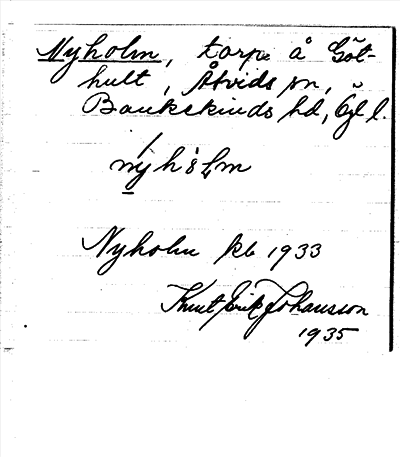 Nyholm, torp å Göt-
hult, Åtvids sn,
Bankekinds hd, Ög l.
Nyholm kb 1933
Knut Erik Johansson
1935